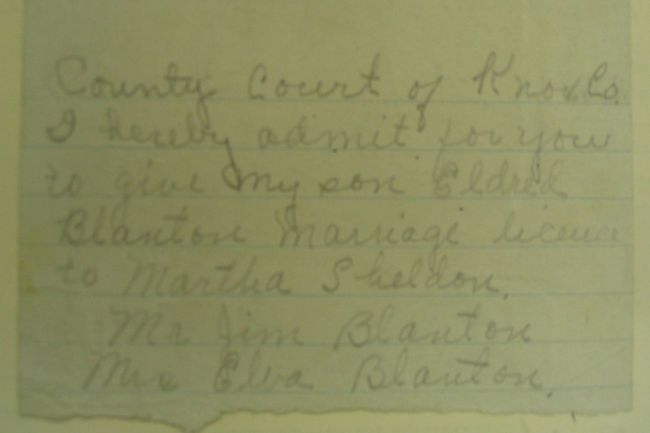 County Court of Knox Co.
I hereby admit for you
to give my son Eldred
Blanton Marriage licence
to Martha Sheldon.
Mr Jim Blanton
Mrs Elva Blanton.